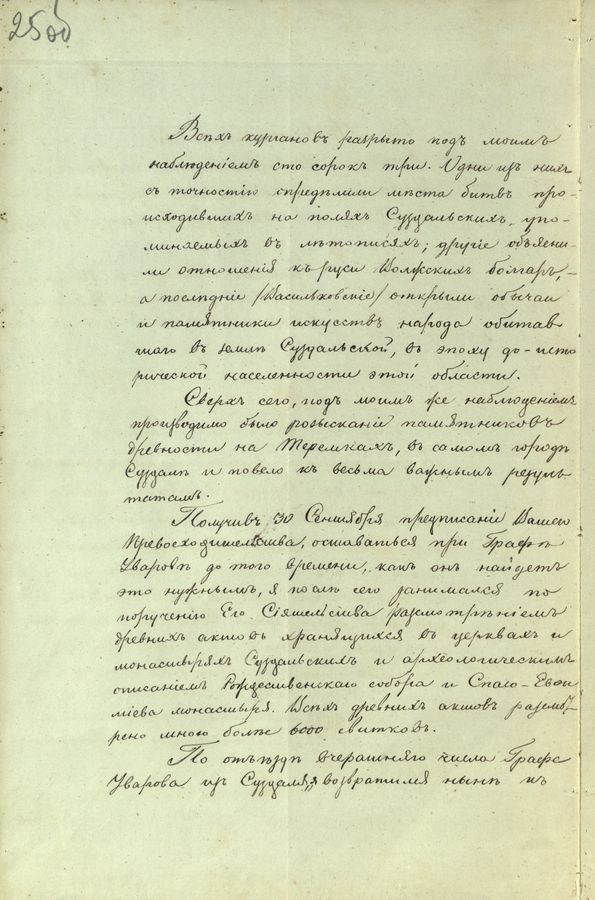 25 об
Всѣхъ кургановъ разрыто подъ моимъ
наблюденіемъ сто сорокъ три. Одни изъ нихъ
съ точностію опредѣлили мѣста битвъ про-
исходившихъ на поляхъ Суздальскихъ, упо-
минаемыхъ въ лѣтописяхъ; другіе объясни-
ли отношенія къ руси Волжскихъ болгаръ,-
а послѣдніе /Васильковскіе/ открыли обычаи
и памятники искусствъ народа обитав
шаго въ землѣ Суздальской, въ эпоху до-исто
рической населенности этой области.
Сверхъ сего, подъ моимъ же наблюденіемъ
производимо было розысканіе памятниковъ
древности на Теремкахъ, въ самомъ городѣ
Суздалѣ и повело къ весьма важнымъ резуль
татамъ.
Получивъ 30 Сентября предписаніе Вашего
Превосходительства, оставаться при Графѣ
Уваровѣ до того времени, какъ онъ найдетъ
это нужнымъ, я послѣ сего занимался по
порученію Его Сіятельства разсмотрѣніемъ
древнихъ актовъ хранящихся въ церквахъ и
монастыряхъ Суздальскихъ и археологическимъ
описаніемъ Рождественскаго собора и Спасо-Евѳи
міева монастыря. Всѣхъ древнихъ актовъ разсмот
рено мною болѣе 6000 свитковъ.
По отъѣздѣ вчерашняго числа Графа
Уварова изъ Суздаля, я возвратился нынѣ къ